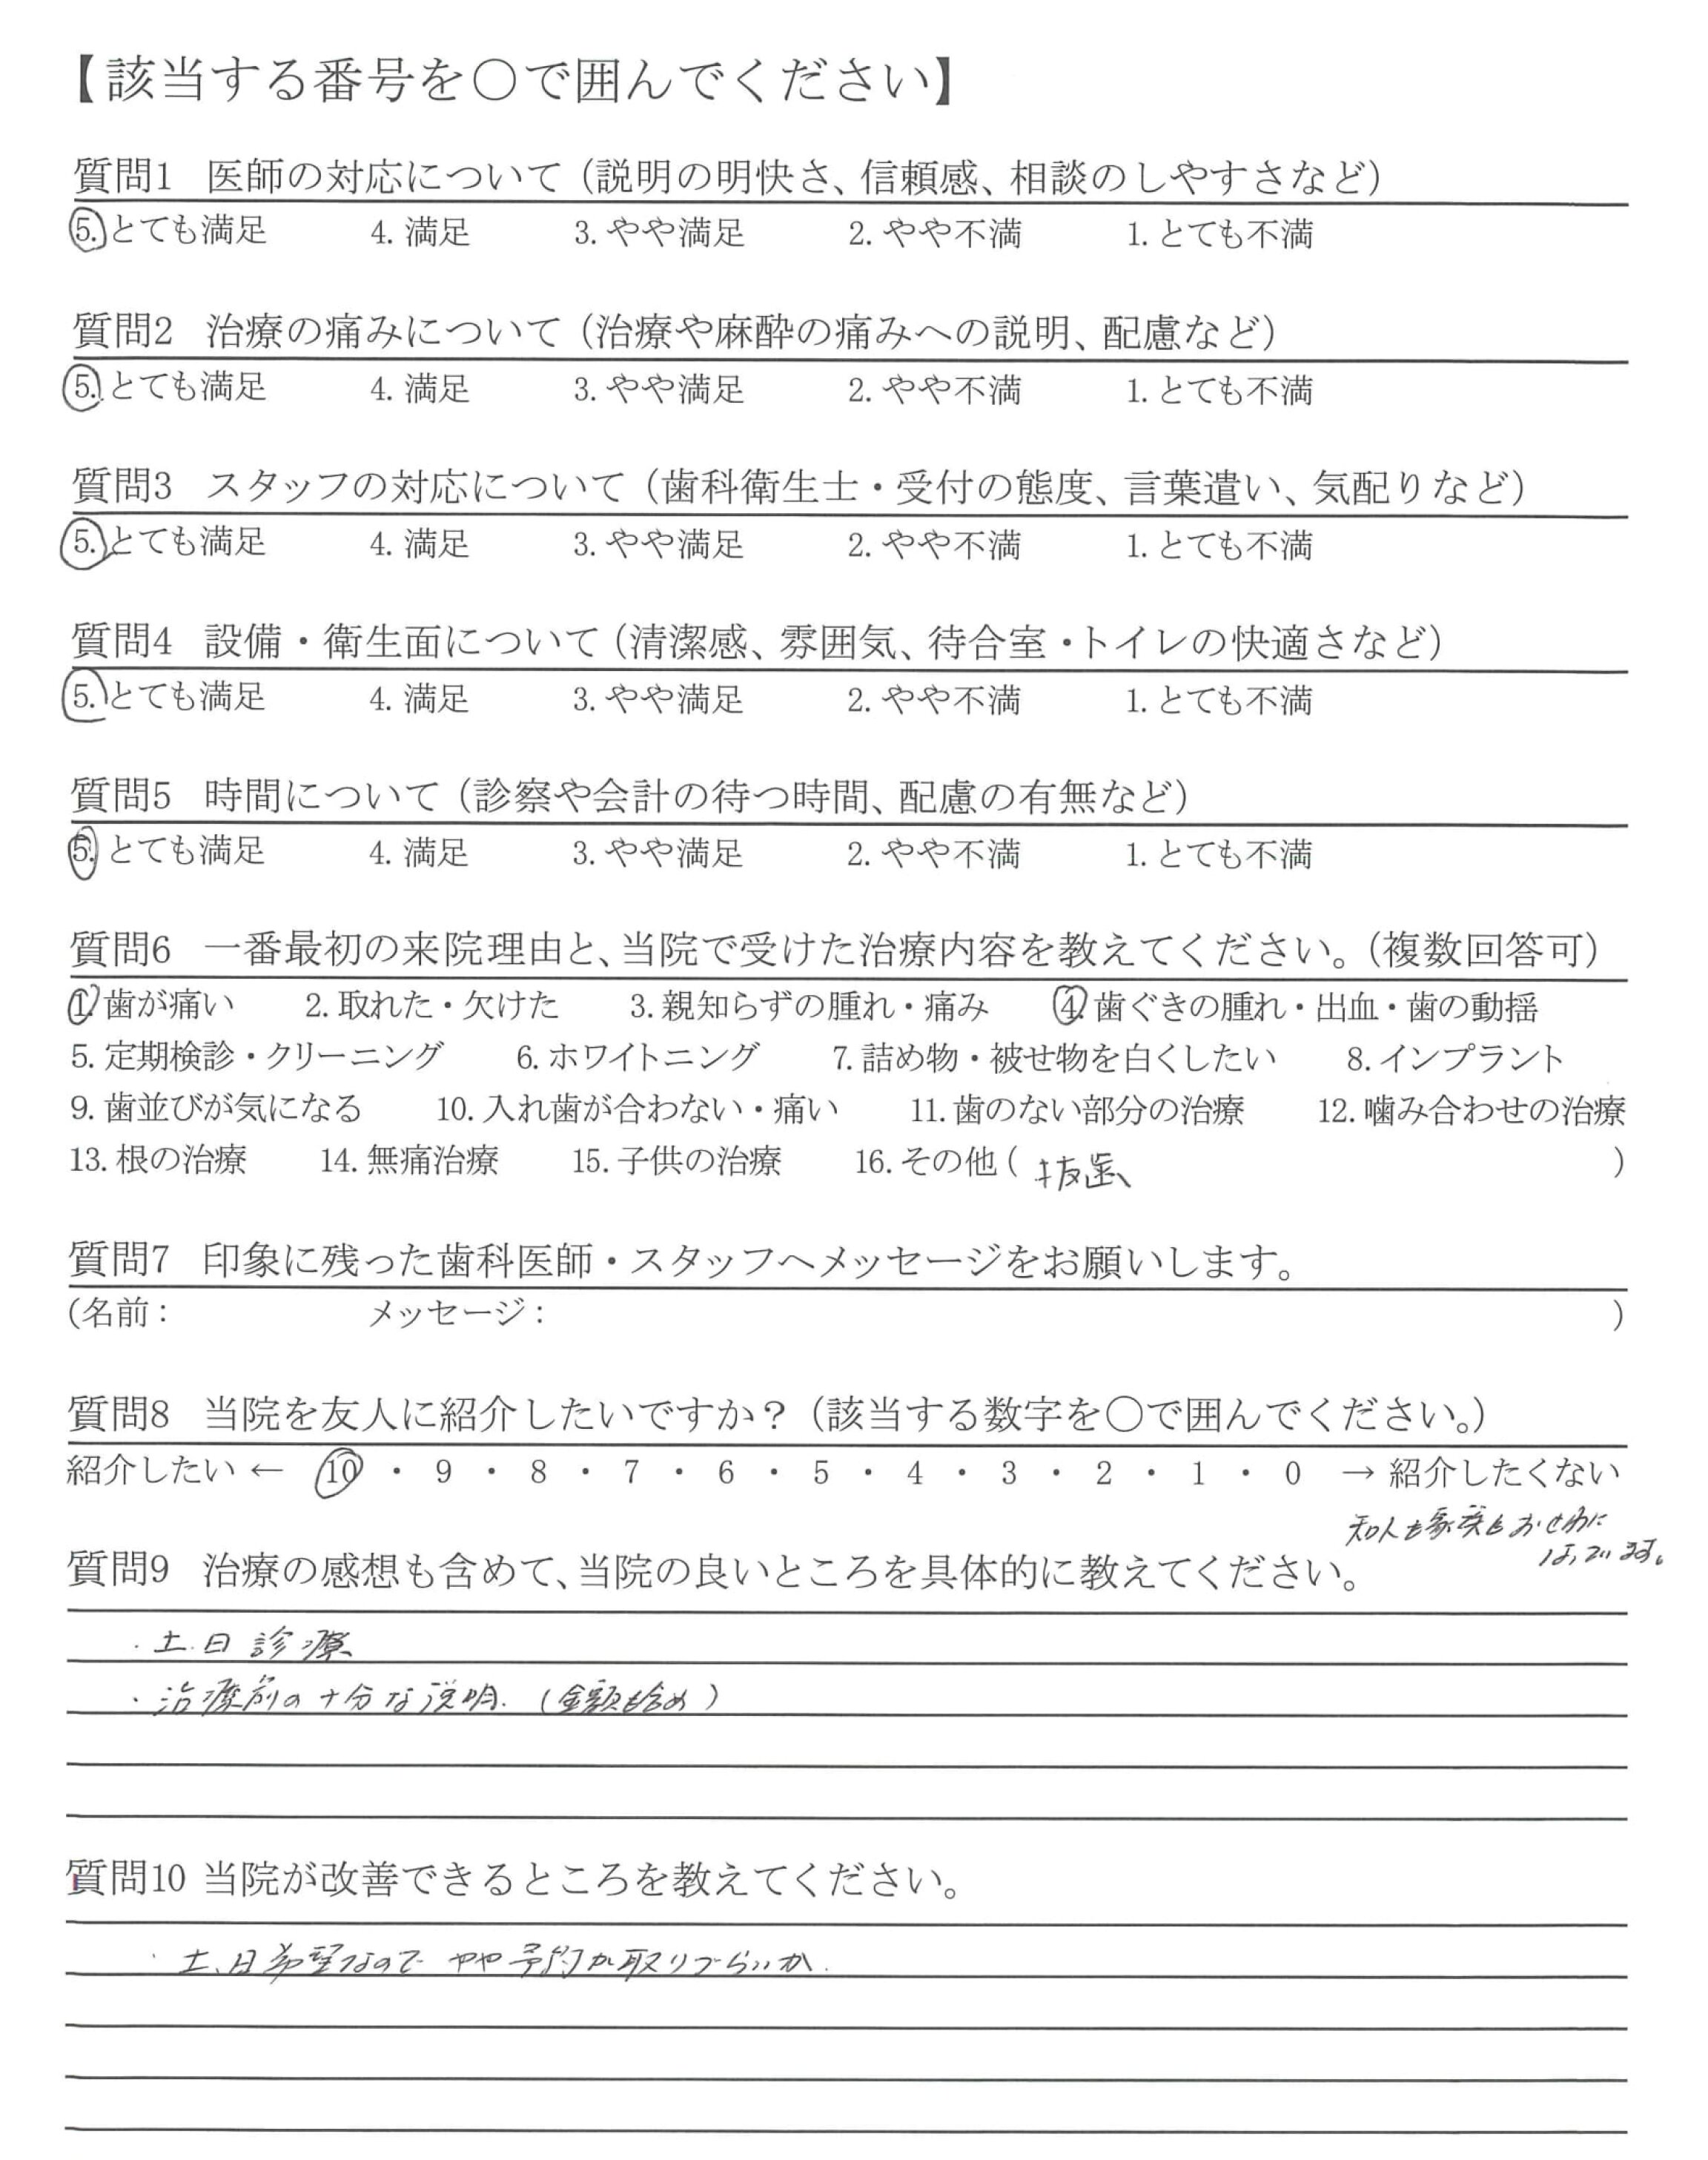 【該当する番号を○で囲んでください】
質問1 医師の対応について（説明の明快さ、信頼感、相談のしやすさなど）
5. とても満足 4. 満足 3. やや満足 2. やや不満 1. とても不満
質問2 治療の痛みについて（治療や麻酔の痛みへの説明、配慮など）
5. とても満足 4. 満足 3. やや満足 2. やや不満 1. とても不満
質問3 スタッフの対応について（歯科衛生士・受付の態度、言葉遣い、気配りなど）
5. とても満足 4. 満足 3. やや満足 2. やや不満 1. とても不満
質問4 設備・衛生面について（清潔感、雰囲気、待合室・トイレの快適さなど）
5. とても満足 4. 満足 3. やや満足 2. やや不満 1. とても不満
質問5 時間について（診察や会計の待つ時間、配慮の有無など）
5. とても満足 4. 満足 3. やや満足 2. やや不満 1. とても不満
質問6 一番最初の来院理由と、当院で受けた治療内容を教えてください。（複数回答可）
1. 歯が痛い 2. 取れた・欠けた 3. 親知らずの腫れ・痛み 4. 歯ぐきの腫れ・出血・歯の動揺
5. 定期検診・クリーニング 6. ホワイトニング 7. 詰め物・被せ物を白くしたい 8. インプラント
9. 歯並びが気になる 10. 入れ歯が合わない・痛い 11. 歯のない部分の治療 12. 噛み合わせの治療
13. 根の治療 14. 無痛治療 15. 子供の治療 16. その他（ 抜歯 ）
質問7 印象に残った歯科医師・スタッフへメッセージをお願いします。
（名前： メッセージ： ）
質問8 当院を友人に紹介したいですか？（該当する数字を○で囲んでください。）
紹介したい ← 10 ・ 9 ・ 8 ・ 7 ・ 6 ・ 5 ・ 4 ・ 3 ・ 2 ・ 1 ・ 0 → 紹介したくない
知人も家族もおせわに
なっています。
質問9 治療の感想も含めて、当院の良いところを具体的に教えてください。
・土・日 診療
・治療前の十分な説明.（金額も含め）
質問10 当院が改善できるところを教えてください。
・土、日希望なので やや予約が取りづらいか.